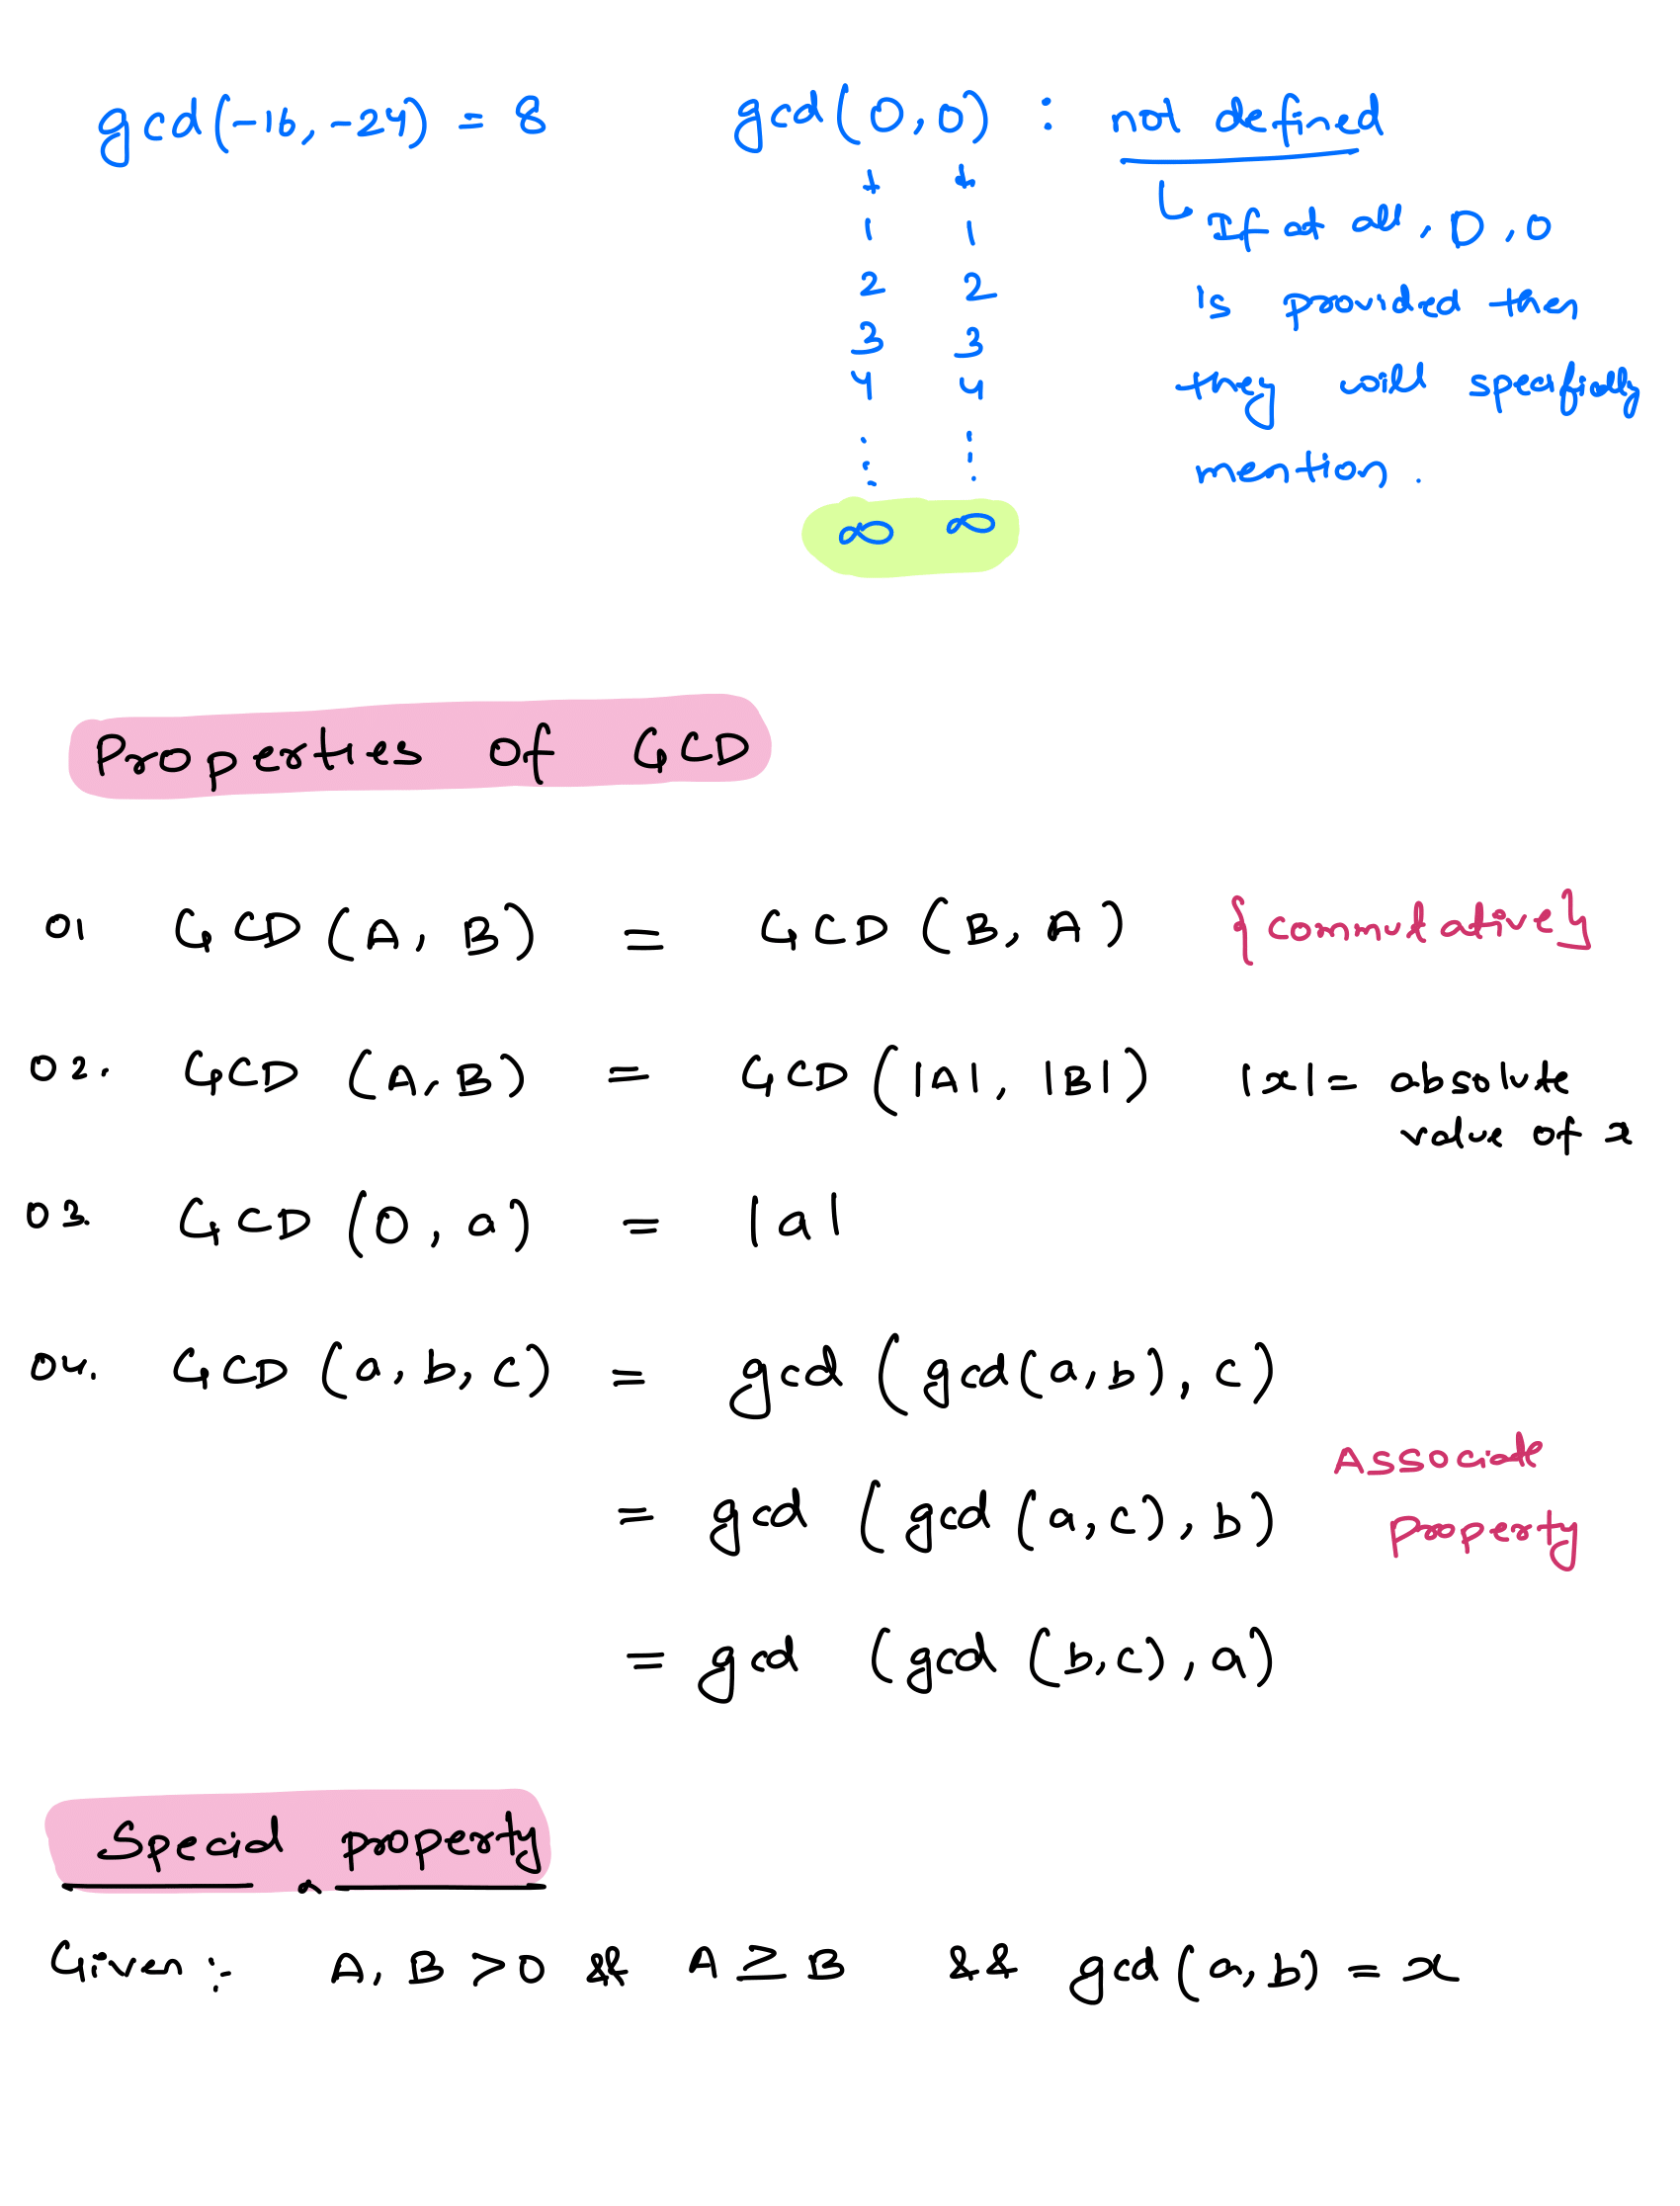 gcd(-16, -24) = 8
gcd(0,0) : not defined
↓ ↓
1 1
2 2
3 3
4 4
⋮ ⋮
∞ ∞
↳ If at all, 0, 0
is provided then
they will specifically
mention.
Properties of GCD
01 GCD (A, B) = GCD (B, A) {commutative}
02. GCD (A, B) = GCD (|A|, |B|) |x| = absolute
value of x
03. GCD (0, a) = |a|
04. GCD (a, b, c) = gcd (gcd(a,b), c)
= gcd (gcd (a,c), b)
Associate
Property
= gcd (gcd (b,c), a)
Special property
Given : A, B > 0 & A ≥ B && gcd(a,b) = x